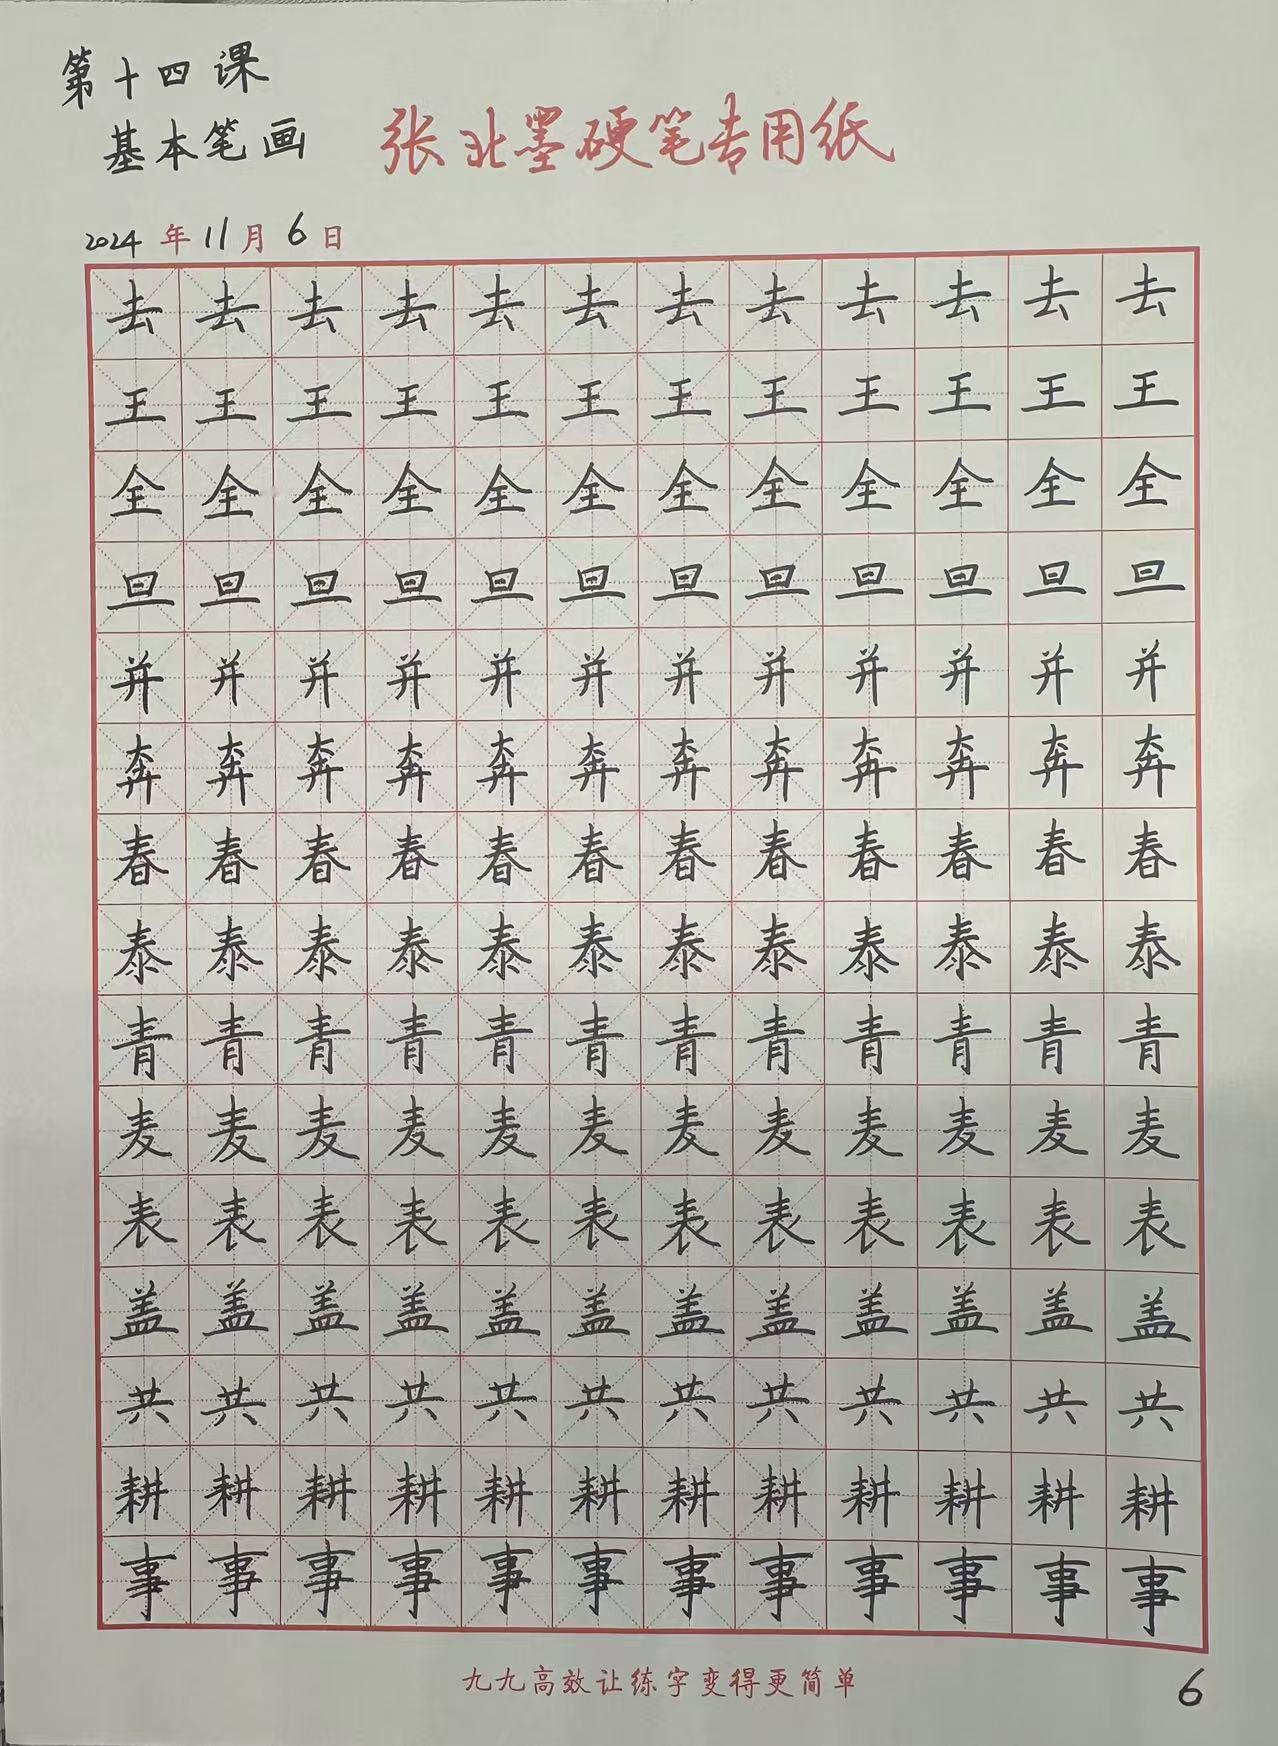 第十四课
基本笔画
张北墨硬笔专用纸
2024年11月6日
去去去去去去去去去去去去
王王王王王王王王王王王王
全全全全全全全全全全全全
旦旦旦旦旦旦旦旦旦旦旦旦
并并并并并并并并并并并并
奔奔奔奔奔奔奔奔奔奔奔奔
春春春春春春春春春春春春
泰泰泰泰泰泰泰泰泰泰泰泰
青青青青青青青青青青青青
麦麦麦麦麦麦麦麦麦麦麦麦
表表表表表表表表表表表表
盖盖盖盖盖盖盖盖盖盖盖盖
共共共共共共共共共共共共
耕耕耕耕耕耕耕耕耕耕耕耕
事事事事事事事事事事事事
九九高效让练字变得更简单
6